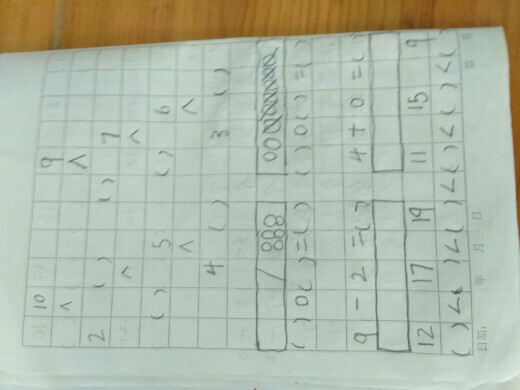 10 9
∧ ∧
2 ( ) ( ) 7
∧ ∧
( ) 5 ( ) 6
∧ ∧
4 ( ) 3 ( )
( )○( )=( ) ( )○( )=( )
9-2=( ) 4+0=( )
12 17 19 11 15 9
( )<( )<( )<( )<( )<( )
日期: 年 月 日